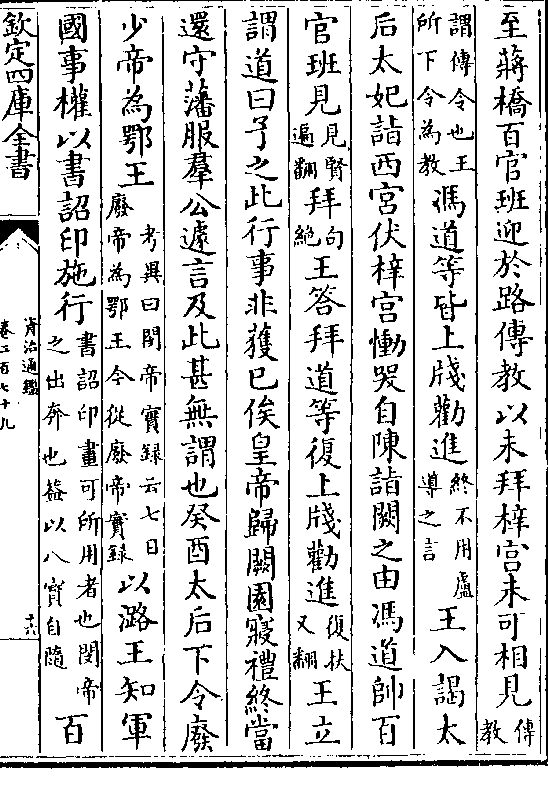 至蔣橋百官班迎於路傳教以未拜梓宫未可相見傳教
謂傳令也王所下令為教馮道等皆上牋勸進終不用盧導之言王入謁太
后太妃詣西宫伏梓宫慟哭自陳詣闕之由馮道帥百
官班見見賢遍翻拜句絶王答拜道等復上牋勸進復扶又翻王立
謂道曰予之此行事非獲已俟皇帝歸闕園寢禮終當
還守藩服羣公遽言及此甚無謂也癸酉太后下令廢
少帝為鄂王考異曰閔帝實録云七日廢帝為鄂王今從廢帝實録以潞王知軍
國事權以書詔印施行書詔印畫可所用者也閔帝之出奔也葢以八寶自隨百
欽定四庫全書
資治通鑑
卷二百七十九
十六